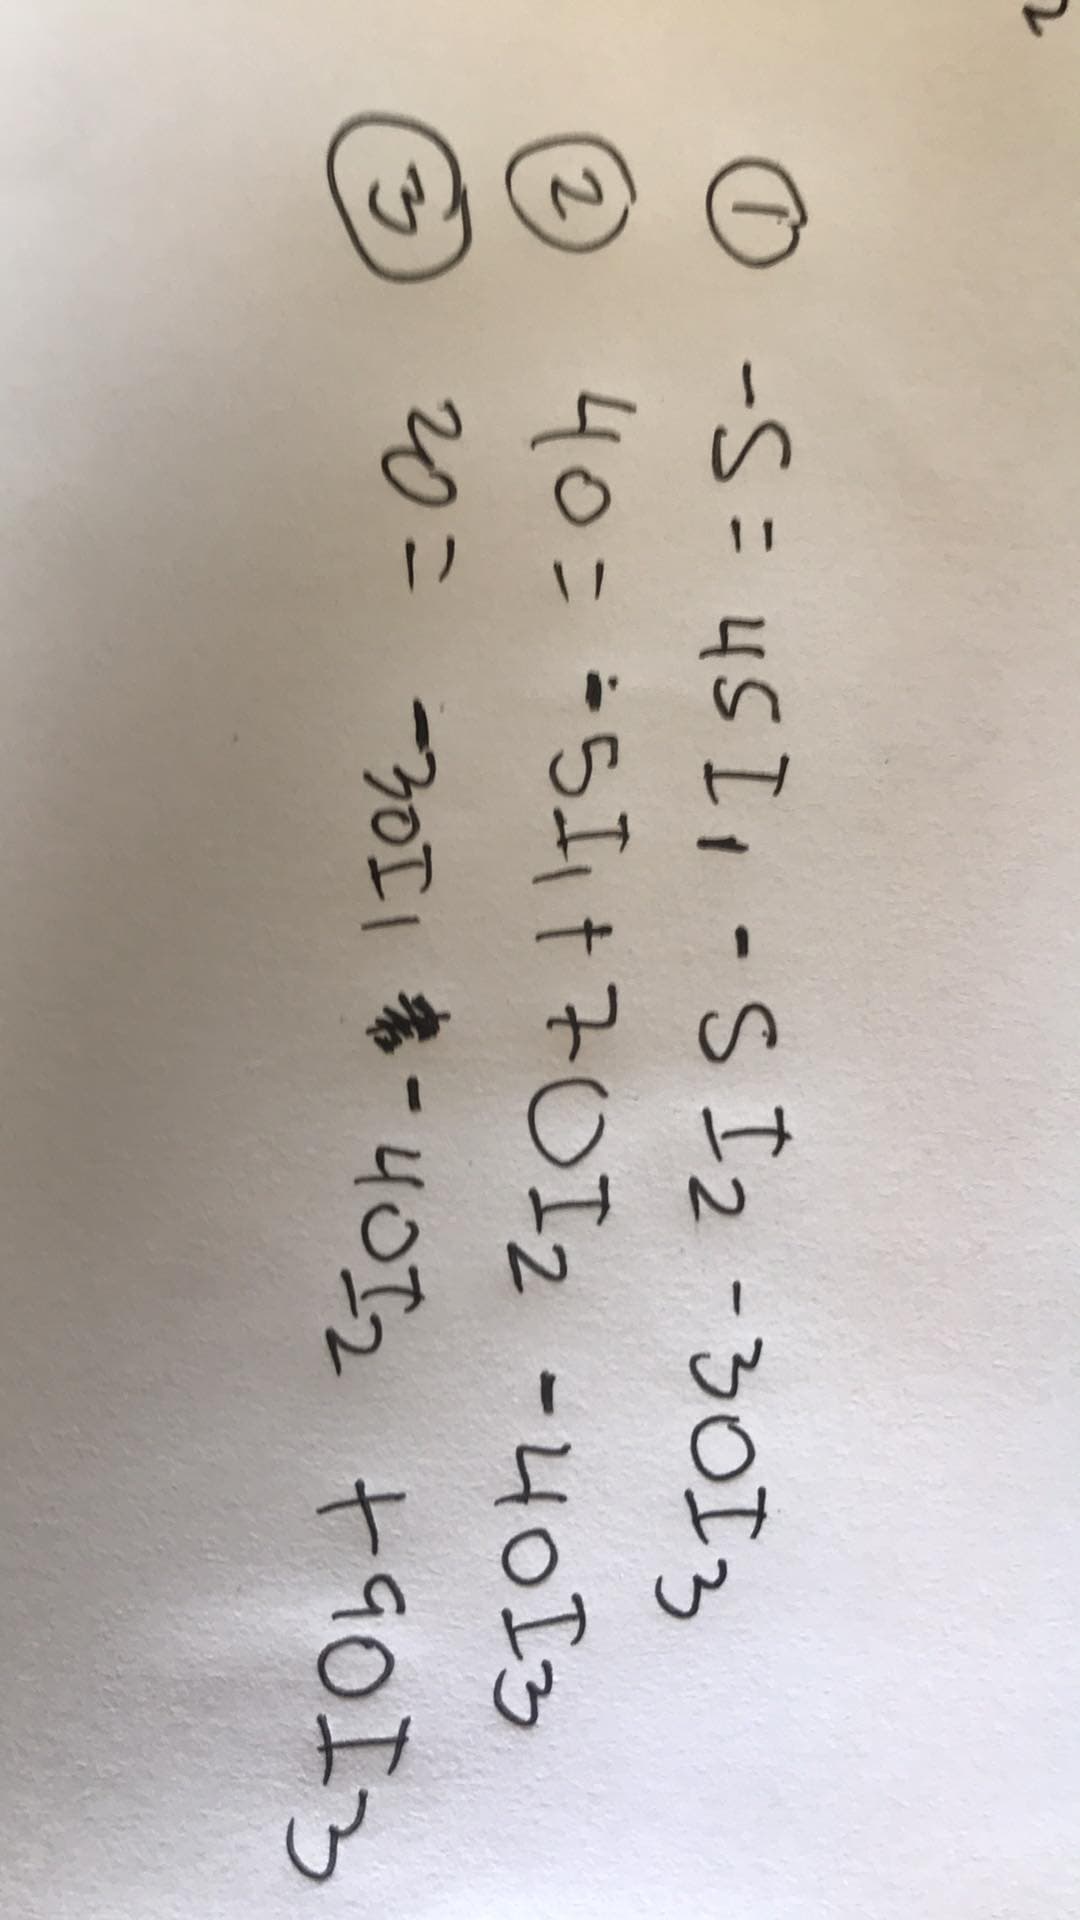 2
① -5 = 45I1 - 5I2 - 30I3
② 40 = -5I1 + 70I2 - 40I3
③ 20 = -30I1 - 40I2 + 90I3